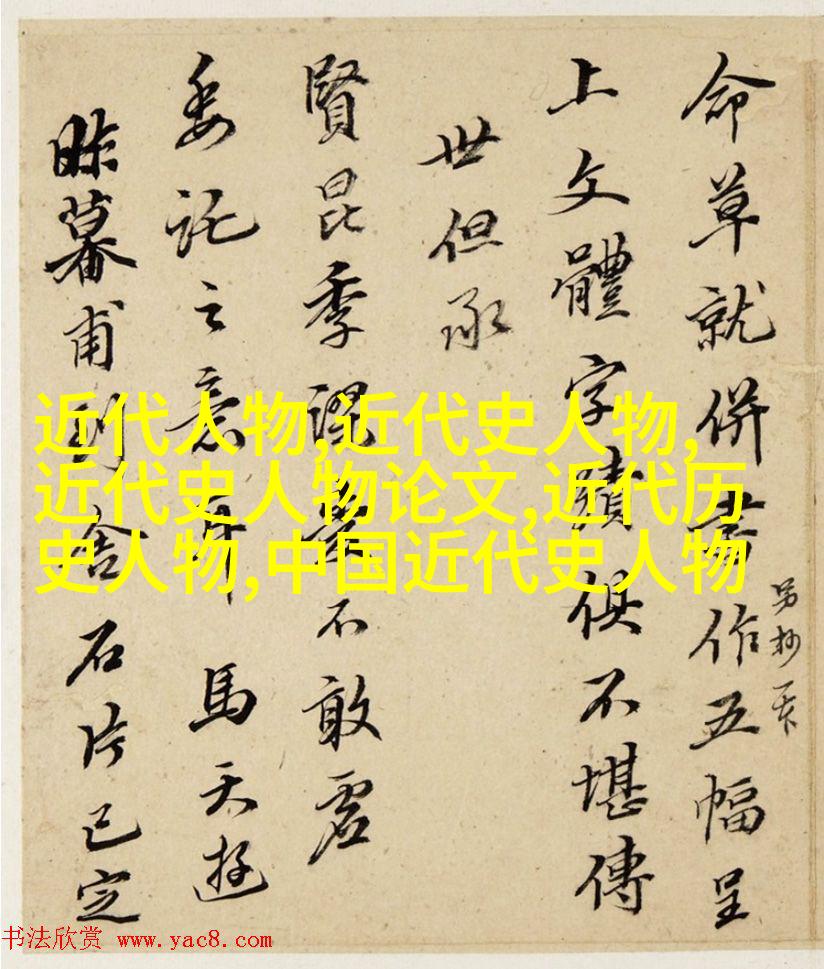 命草就併書作五幅呈
另抄一
上文體字蹟俱不堪傳
世但承
賢昆季謬不敢虛
委託之意耳馬天遊
昨暮甫到舍石片已定
近代人物,近代史人物,
近代史人物论文,近代历
史人物,中国近代史人物
书法欣赏 www.yac8.com